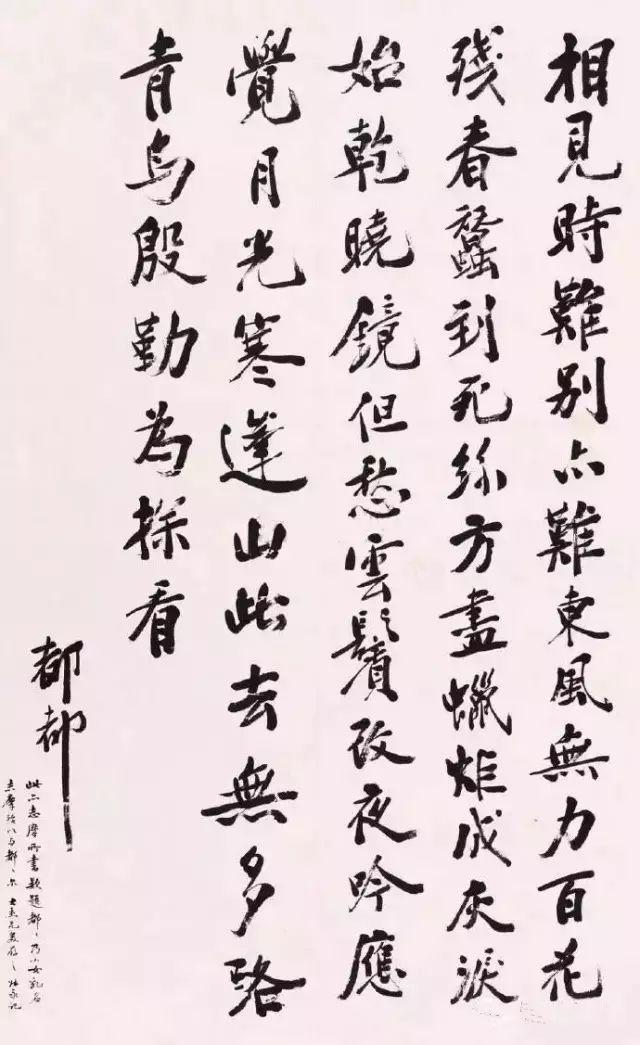 相見時難別亦難東風無力百花
殘春蠶到死絲方盡蠟炬成灰淚
始乾曉鏡但愁雲鬢改夜吟應
覺月光寒蓬山此去無多路
青鳥殷勤為探看
都都
此亦志摩所書款題都〻乃小女乳名
志摩與都〻